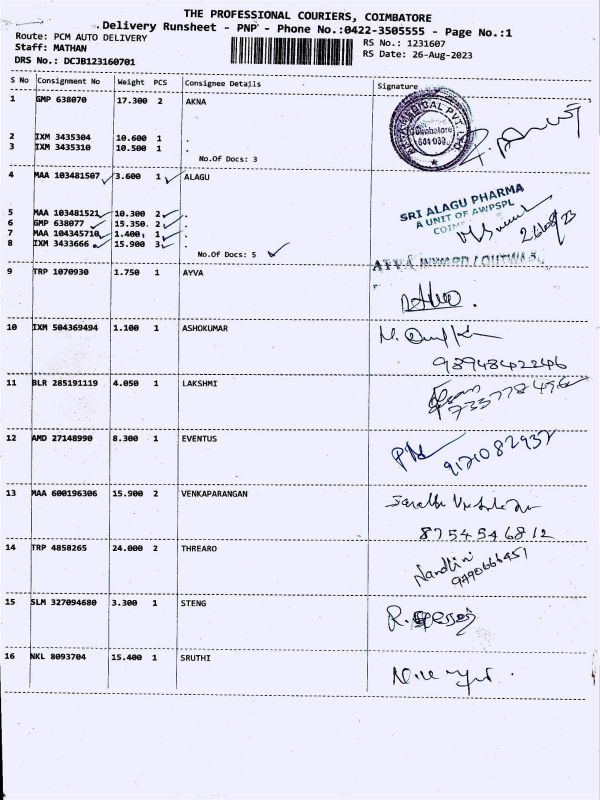 THE PROFESSIONAL COURIERS, COIMBATORE
Delivery Runsheet - PNP - Phone No.:0422-3505555 - Page No.:1
Route: PCM AUTO DELIVERY
RS No.: 1231607
Staff: MATHAN
RS Date: 26-Aug-2023
DRS No.: DCJB123160701
S No Consignment No Weight PCS Consignee Details Signature
1 GMP 638070 17.300 2 AKNA
2 IXM 3435304 10.600 1 .
3 IXM 3435310 10.500 1 .
No.Of Docs: 3
Coimbatore
641 038
4 MAA 103481507 3.600 1 ALAGU
SRI ALAGU PHARMA
A UNIT OF AWPSPL
5 MAA 103481521 10.300 2 .
6 GMP 638077 15.350 2 .
7 MAA 104345710 1.400 1 .
8 IXM 3433666 15.900 3 .
No.Of Docs: 5
9 TRP 1070930 1.750 1 AYVA
10 IXM 504369494 1.100 1 ASHOKUMAR
9894842246
11 BLR 285191119 4.050 1 LAKSHMI
12 AMD 27148990 8.300 1 EVENTUS
9171082937
13 MAA 600196306 15.900 2 VENKAPARANGAN
8754546812
14 TRP 4858265 24.000 2 THREARO
Nandhini
15 SLM 327094680 3.300 1 STENG
16 NKL 8093704 15.400 1 SRUTHI